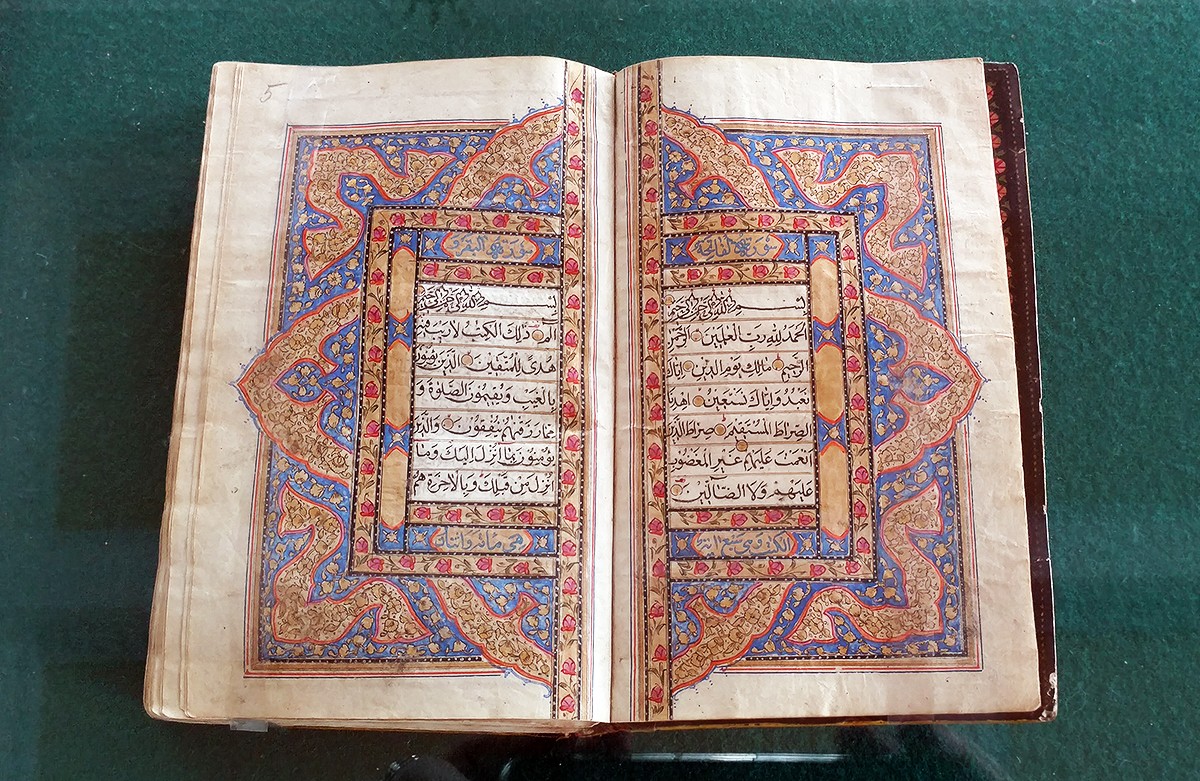 سورة الفاتحة
بسم الله الرحمن الرحيم
الحمد لله رب العلمين الرحمن
الرحيم مالك يوم الدين اياك
نعبد واياك نستعين اهدنا
الصراط المستقيم صراط الذين
انعمت عليهم غير المغضوب
عليهم ولا الضالين
بسم الله الرحمن الرحيم
الم ذلك الكتب لا ريب فيه
هدى للمتقين الذين يؤمنون
بالغيب ويقيمون الصلوة و
مما رزقنهم ينفقون والذين
يؤمنون بما انزل اليك وما
انزل من قبلك وبالاخرة هم
5